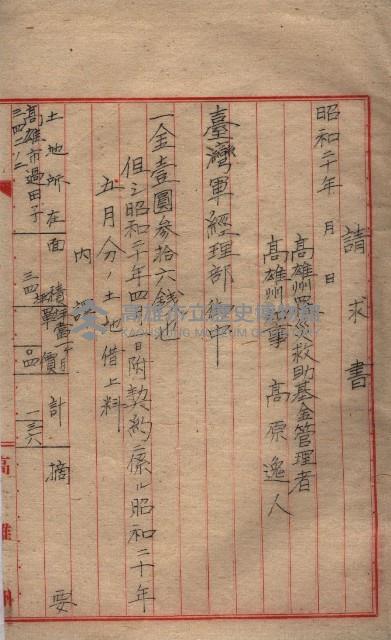 請求書
昭和二十年 月 日
高雄州罹災救助基金管理者
高雄州知事 高原逸人
臺灣軍經理部 御中
一金壹圓參拾六錢也
但シ昭和二十年四月 日附契約ニ係ル昭和二十年
五月分ノ土地借上料
内譯
土地所在 面積 坪當一ヶ月單價 計 摘要
高雄市過田子
三四二ノ二 三四坪 〇四 一三六
高雄州
高雄市立歷史博物館
KAOHSIUNG MUSEUM OF HISTORY